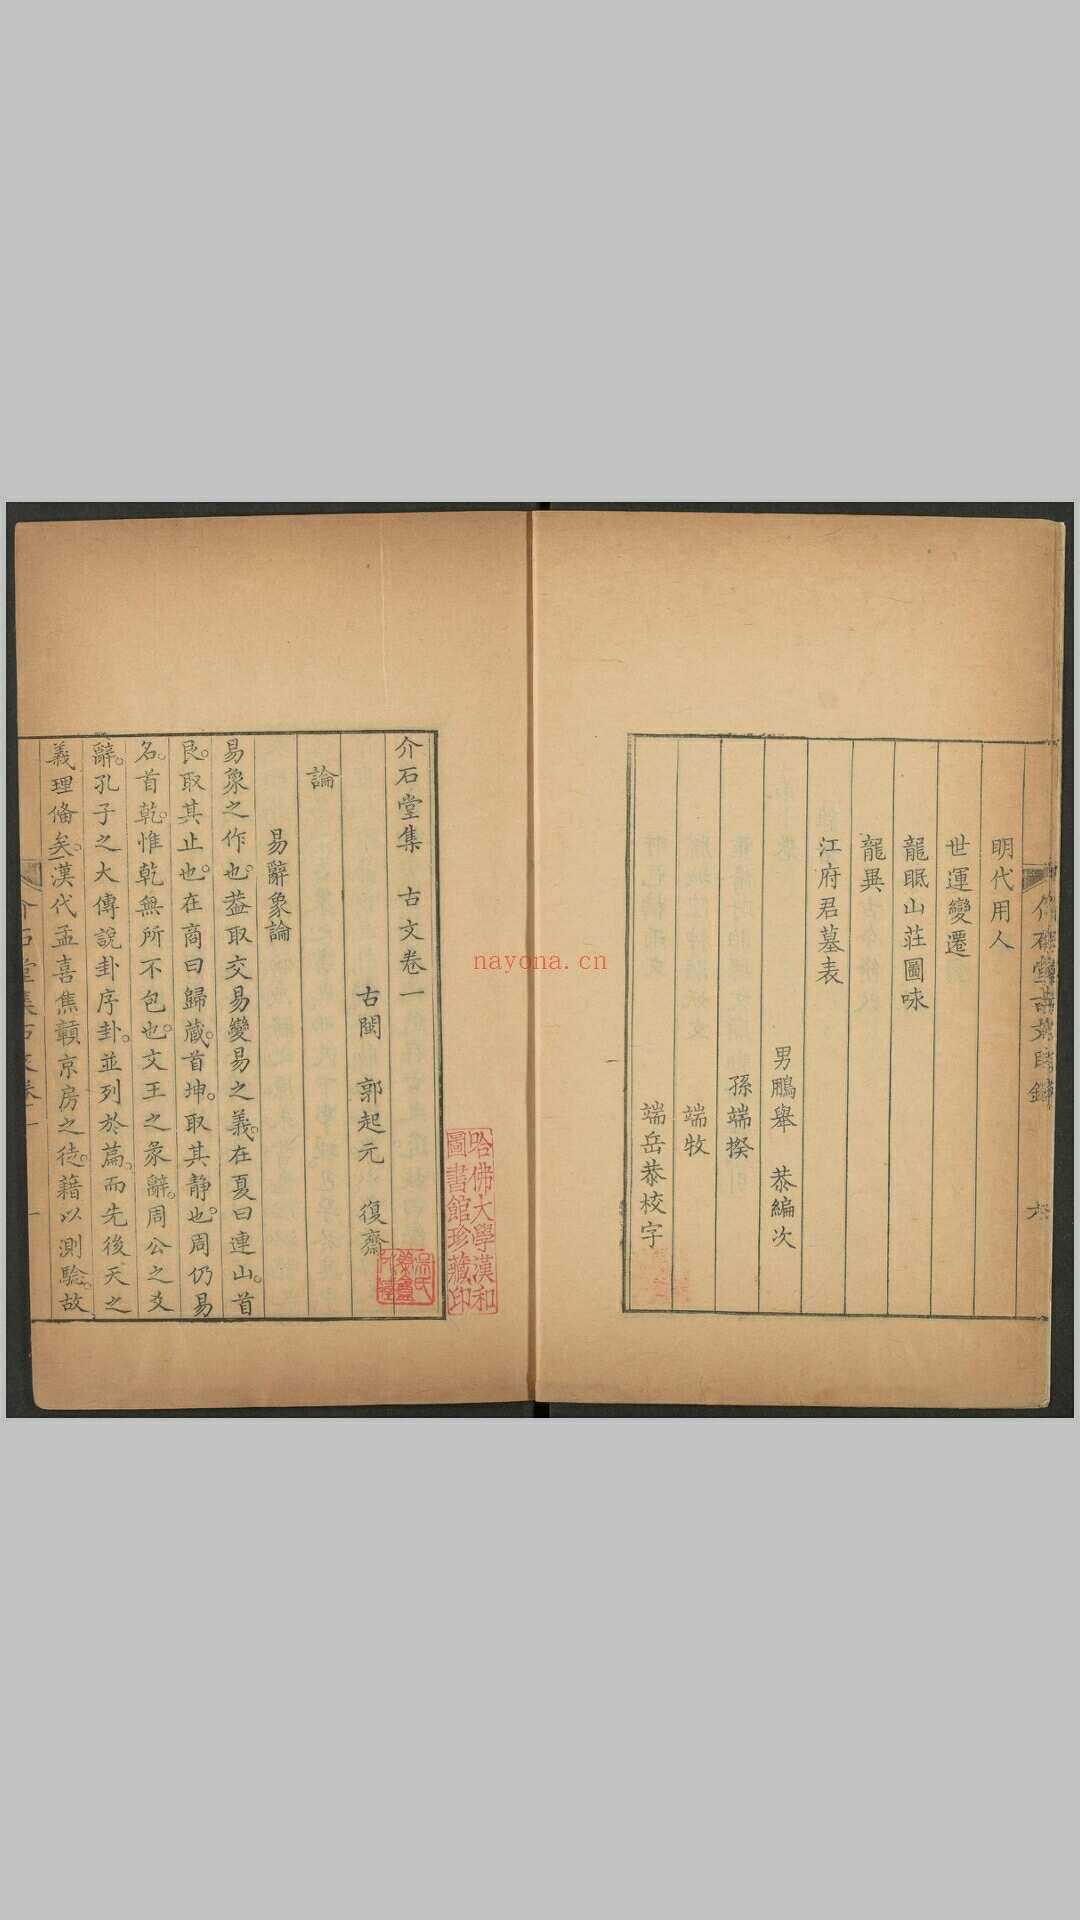 介石堂古文目錄
六
明代用人
世運變遷
龍眠山莊圖咏
龍異
江府君墓表
男鵬舉 恭編次
孫端揆
端牧
端岳恭校字
介石堂集 古文卷一
古閩 郭起元 復齋
論
易辭象論
易象之作也。蓋取交易變易之義。在夏曰連山。首
艮。取其止也。在商曰歸藏。首坤。取其靜也。周仍易
名。首乾。惟乾無所不包也。文王之彖辭。周公之爻
辭。孔子之大傳說卦序卦。並列於篇。而先後天之
義理備矣。漢代孟喜焦贛京房之徒。藉以測驗。故
介石堂集古文卷一
一
哈佛大學漢和
圖書館珍藏印
nayona.cn